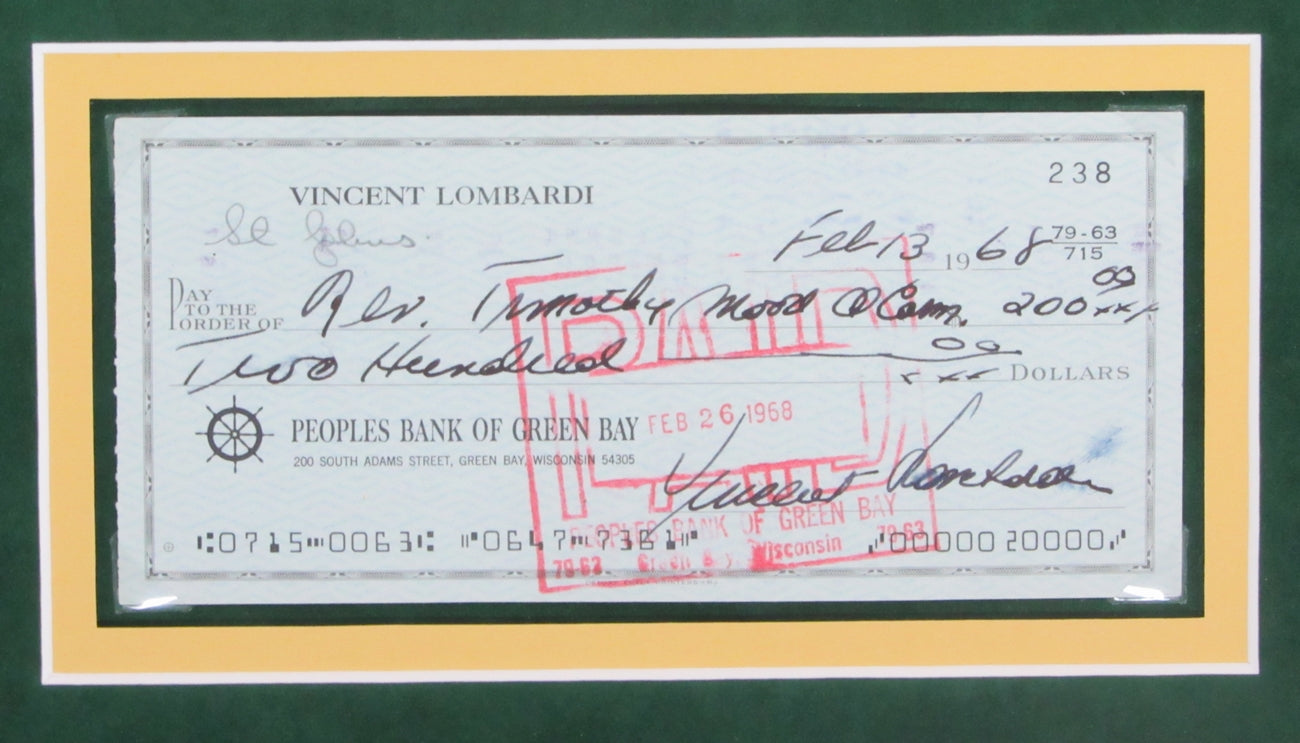 238
VINCENT LOMBARDI
St Johns.
Feb 13 1968 79-63
715
PAY TO THE ORDER OF Rev. Timothy Mood O Carm. 200 00 xxx
Two Hundred 00 xxx DOLLARS
PEOPLES BANK OF GREEN BAY
200 SOUTH ADAMS STREET, GREEN BAY, WISCONSIN 54305
PAID
FEB 26 1968
Vincent Lombardi
PEOPLES BANK OF GREEN BAY
79-63 Green Bay, Wisconsin 79-63
⑆0715⑉0063⑆ ⑈00000 20000⑈